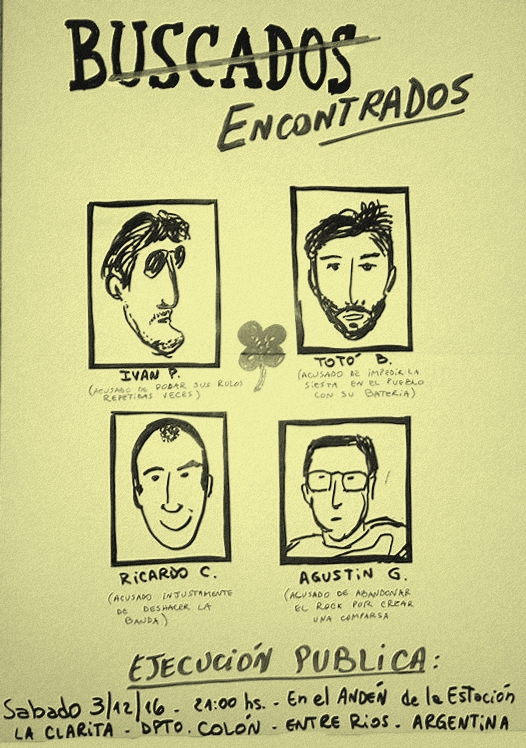 BUSCADOS
ENCONTRADOS
IVAN P.
(ACUSADO DE PODAR SUS RULOS
REPETIDAS VECES)
TOTÓ B.
(ACUSADO DE IMPEDIR LA
SIESTA EN EL PUEBLO
CON SU BATERIA)
RICARDO C.
(ACUSADO INJUSTAMENTE
DE DESHACER LA
BANDA)
AGUSTIN G.
(ACUSADO DE ABANDONAR
EL ROCK POR CREAR
UNA COMPARSA
EJECUCIÓN PUBLICA:
Sabado 3/12/16 - 21:00 hs. - En el ANDÉN de la Estación
LA CLARITA - DPTO. COLÓN - ENTRE RIOS - ARGENTINA